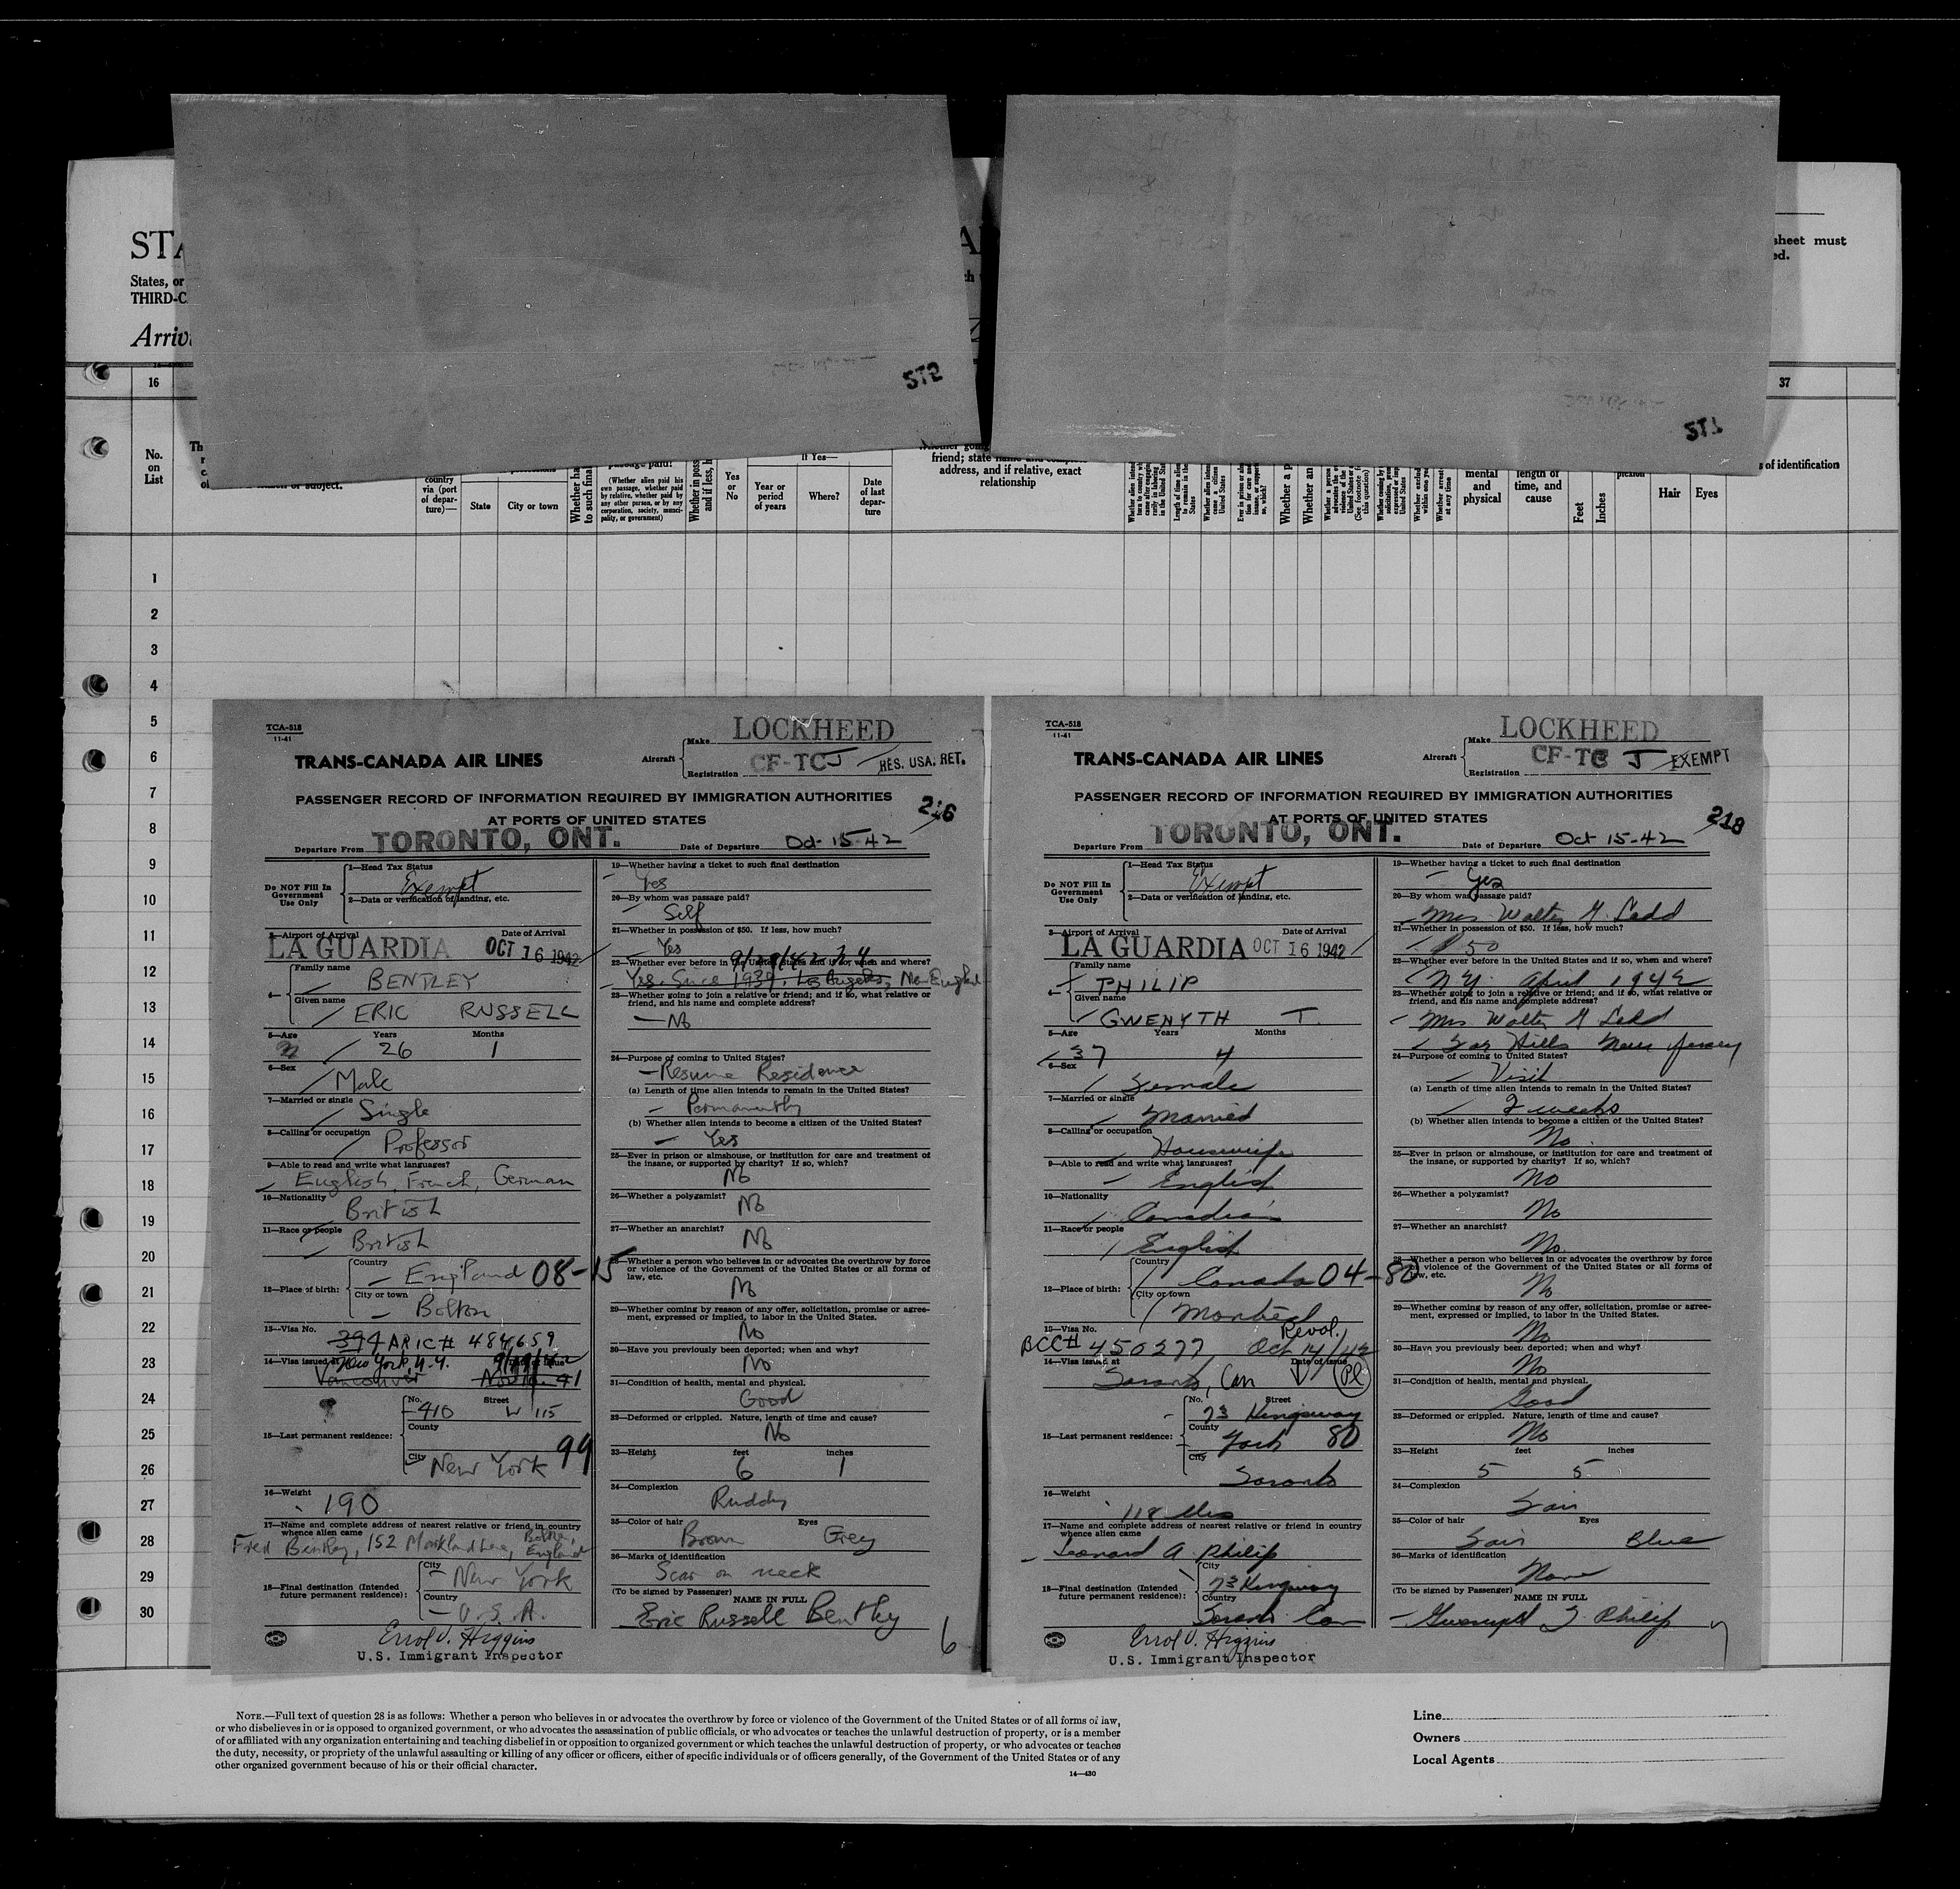 STA
States, or
THIRD-C
Arriv
sheet must
ed.
ST2
ST1
16
37
No.
on
List
country
via (port
of depar-
ture)—
State
City or town
(Whether alien paid his
own passage, whether paid
by relative, whether paid by
any other person, or by any
corporation, society, munici-
pality, or government)
Yes
or
No
If Yes—
Year or
period
of years
Where?
Date
of last
depar-
ture
friend; state name and complete
address, and if relative, exact
relationship
mental
and
physical
length of
time, and
cause
Feet
Inches
Hair
Eyes
s of identification
1
2
3
4
5
6
7
8
9
10
11
12
13
14
15
16
17
18
19
20
21
22
23
24
25
26
27
28
29
30
TCA-518
11-41
TRANS-CANADA AIR LINES
Aircraft
Make LOCKHEED
Registration CF-TCJ
RES. USA. RET.
PASSENGER RECORD OF INFORMATION REQUIRED BY IMMIGRATION AUTHORITIES
AT PORTS OF UNITED STATES
216
Departure From TORONTO, ONT.
Date of Departure Oct-15-42
Do NOT Fill In
Government
Use Only
1—Head Tax Status
Exempt
2—Data or verification of landing, etc.
3—Airport of Arrival
Date of Arrival
LA GUARDIA OCT 16 1942
4—
Family name
BENTLEY
Given name
ERIC RUSSELL
5—Age Years Months
26 1
6—Sex
Male
7—Married or single
Single
8—Calling or occupation
Professor
9—Able to read and write what languages?
English, French, German
10—Nationality
British
11—Race or people
British
12—Place of birth:
Country
England 08-15
City or town
Bolton
13—Visa No.
394 ARIC# 484659
14—Visa issued at New York, N.Y. Date of Issue
Vancouver
15—Last permanent residence:
No. Street
410 W 115
County
City
New York 99
16—Weight
190
17—Name and complete address of nearest relative or friend in country
whence alien came
Fred Bentley, 152 Markland Bolton, England
18—Final destination (Intended
future permanent residence):
City
New York
Country
U.S.A.
Errol V. Higgins
U.S. Immigrant Inspector
19—Whether having a ticket to such final destination
Yes
20—By whom was passage paid?
Self
21—Whether in possession of $50. If less, how much?
Yes
22—Whether ever before in the United States and if so, when and where?
Yes. Since 1939. Los Angeles, New England
23—Whether going to join a relative or friend; and if so, what relative or
friend, and his name and complete address?
No
24—Purpose of coming to United States?
Resume Residence
(a) Length of time alien intends to remain in the United States?
Permanently
(b) Whether alien intends to become a citizen of the United States?
Yes
25—Ever in prison or almshouse, or institution for care and treatment of
the insane, or supported by charity? If so, which?
No
26—Whether a polygamist?
No
27—Whether an anarchist?
No
28—Whether a person who believes in or advocates the overthrow by force
or violence of the Government of the United States or all forms of
law, etc.
No
29—Whether coming by reason of any offer, solicitation, promise or agree-
ment, expressed or implied, to labor in the United States.
No
30—Have you previously been deported; when and why?
No
31—Condition of health, mental and physical.
Good
32—Deformed or crippled. Nature, length of time and cause?
No
33—Height feet inches
6 1
34—Complexion
Ruddy
35—Color of hair Eyes
Brown Grey
36—Marks of identification
Scar on neck
(To be signed by Passenger)
NAME IN FULL
Eric Russell Bentley
6
TCA-518
11-41
TRANS-CANADA AIR LINES
Aircraft
Make LOCKHEED
Registration CF-TC J
EXEMPT
PASSENGER RECORD OF INFORMATION REQUIRED BY IMMIGRATION AUTHORITIES
AT PORTS OF UNITED STATES
218
Departure From TORONTO, ONT.
Date of Departure Oct 15-42
Do NOT Fill In
Government
Use Only
1—Head Tax Status
Exempt
2—Data or verification of landing, etc.
3—Airport of Arrival
Date of Arrival
LA GUARDIA OCT 16 1942
4—
Family name
PHILIP
Given name
GWENYTH T.
5—Age Years Months
37 4
6—Sex
Female
7—Married or single
Married
8—Calling or occupation
Housewife
9—Able to read and write what languages?
English
10—Nationality
Canadian
11—Race or people
English
12—Place of birth:
Country
Canada 04-80
City or town
Montreal
13—Visa No.
BCC# 450277 Reval. Oct 14/42
14—Visa issued at Date of issue
Toronto, Can
15—Last permanent residence:
No. Street
73 Kingsway
County
York 80
City
Toronto
16—Weight
118 lbs
17—Name and complete address of nearest relative or friend in country
whence alien came
Leonard A. Philip
18—Final destination (Intended
future permanent residence):
City
73 Kingsway
Country
Toronto Can
Errol V. Higgins
U.S. Immigrant Inspector
19—Whether having a ticket to such final destination
Yes
20—By whom was passage paid?
Mrs Walter G. Ladd
21—Whether in possession of $50. If less, how much?
$50
22—Whether ever before in the United States and if so, when and where?
N.Y. April 1942
23—Whether going to join a relative or friend; and if so, what relative or
friend, and his name and complete address?
Mrs Walter G Ladd
Far Hills New Jersey
24—Purpose of coming to United States?
Visit
(a) Length of time alien intends to remain in the United States?
2 weeks
(b) Whether alien intends to become a citizen of the United States?
No
25—Ever in prison or almshouse, or institution for care and treatment of
the insane, or supported by charity? If so, which?
No
26—Whether a polygamist?
No
27—Whether an anarchist?
No
28—Whether a person who believes in or advocates the overthrow by force
or violence of the Government of the United States or all forms of
law, etc.
No
29—Whether coming by reason of any offer, solicitation, promise or agree-
ment, expressed or implied, to labor in the United States.
No
30—Have you previously been deported; when and why?
No
31—Condition of health, mental and physical.
Good
32—Deformed or crippled. Nature, length of time and cause?
No
33—Height feet inches
5 5
34—Complexion
Fair
35—Color of hair Eyes
Fair Blue
36—Marks of identification
None
(To be signed by Passenger)
NAME IN FULL
Gwenyth T. Philip
7
NOTE.—Full text of question 28 is as follows: Whether a person who believes in or advocates the overthrow by force or violence of the Government of the United States or of all forms of law,
or who disbelieves in or is opposed to organized government, or who advocates the assassination of public officials, or who advocates or teaches the unlawful destruction of property, or is a member
of or affiliated with any organization entertaining and teaching disbelief in or opposition to organized government or which teaches the unlawful destruction of property, or who advocates or teaches
the duty, necessity, or propriety of the unlawful assaulting or killing of any officer or officers, either of specific individuals or of officers generally, of the Government of the United States or of any
other organized government because of his or their official character.
14—430
Line
Owners
Local Agents